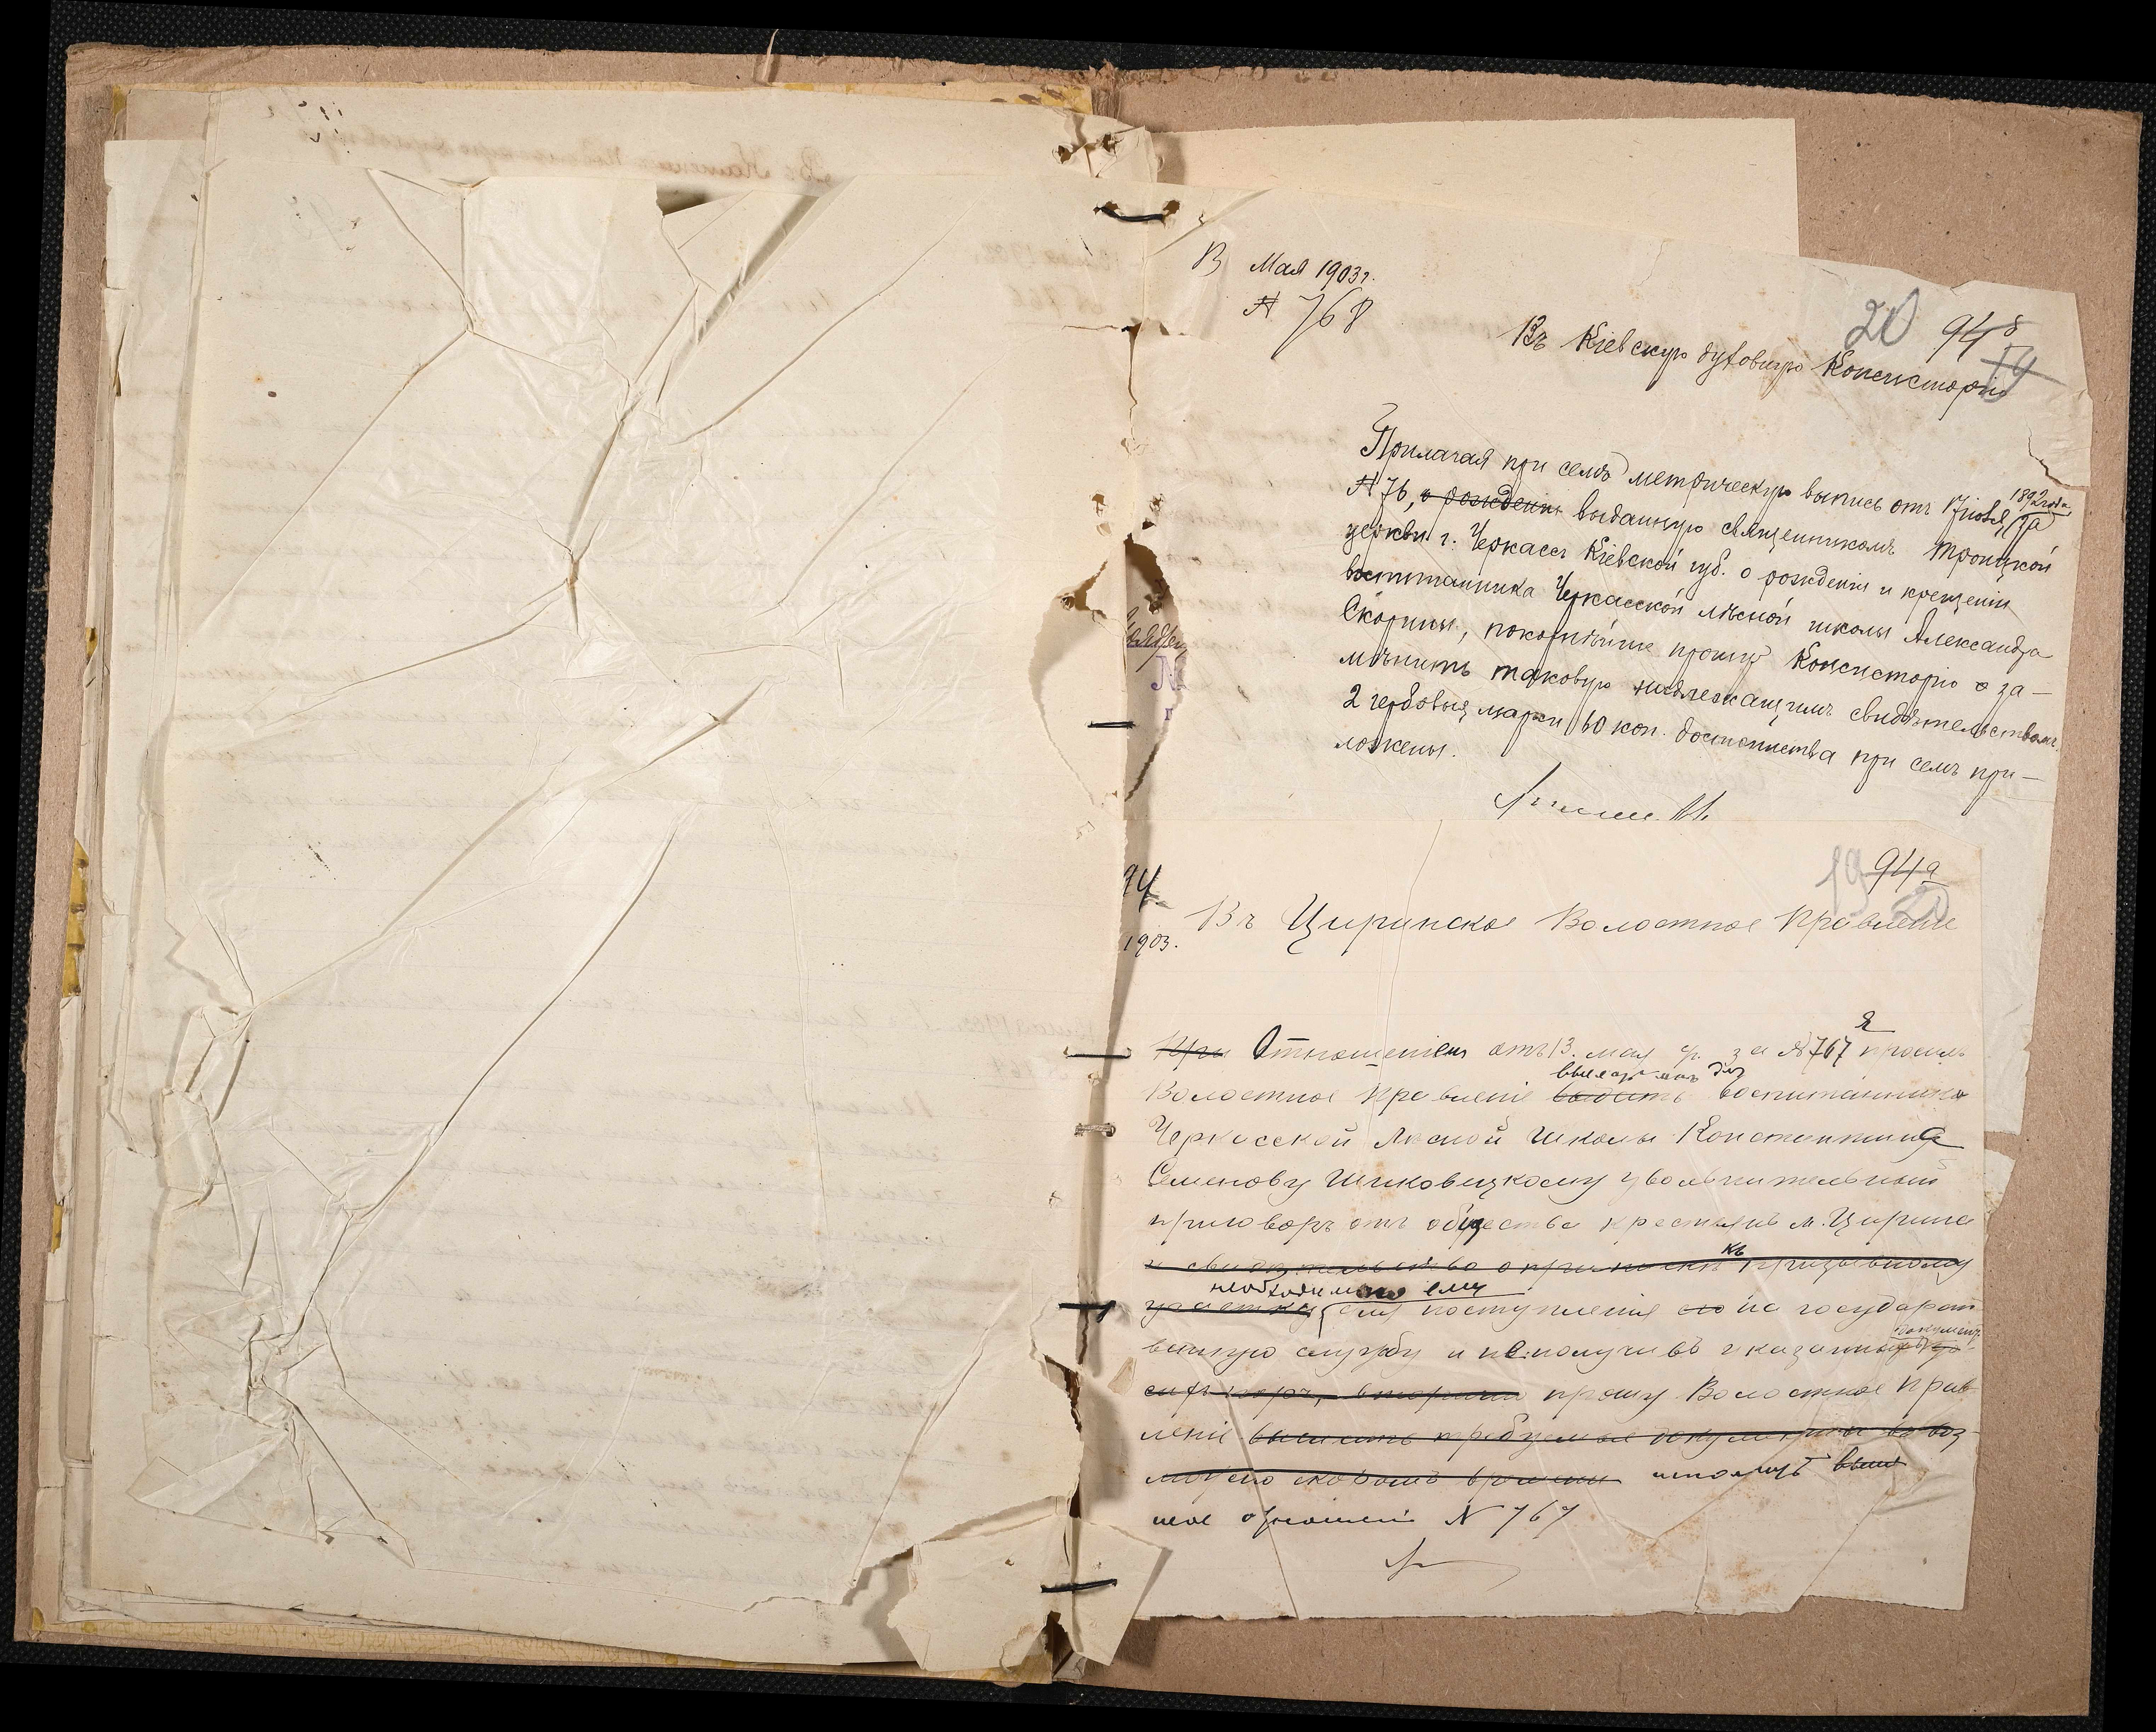 13 Мая 1903 г.
№ 768
20 94 б
19
Въ Кіевскую духовную Консисторію
Прилагая при семъ метрическую выпись отъ 17 іюля 1892 года за
№ 76, о рожденіи выданную священникомъ Троицкой
церкви г. Черкассъ Кіевской губ. о рожденіи и крещеніи
воспитанника Черкасской лѣсной школы Александра
Скорины, покорнѣйше прошу Консисторію о за-
мѣнить таковую надлежащимъ свидѣтельствомъ.
2 гербовыя марки 60 коп. достоинства при семъ при-
ложены.
94
1903.
19 94а
Въ Циринское Волостное Правленіе
При Отношеніемъ отъ 13 мая с.г. за № 767 я просилъ
Волостное Правленіе выдать выслать для воспитанника
Черкасской Лѣсной школы Константина
Семенову Шиковицкому увольнительный
приговоръ отъ общества крестьянъ м. Цирина
и свидѣтельство о припискѣ къ призывному
участку, необходимые ему для поступленія его на государст
венную службу и не получивъ указанныхъ документ.
прошу Волостное Прав
леніе выслать требуемые документы въ воз
можно скоромъ времени исполнить
мое отношеніе № 767